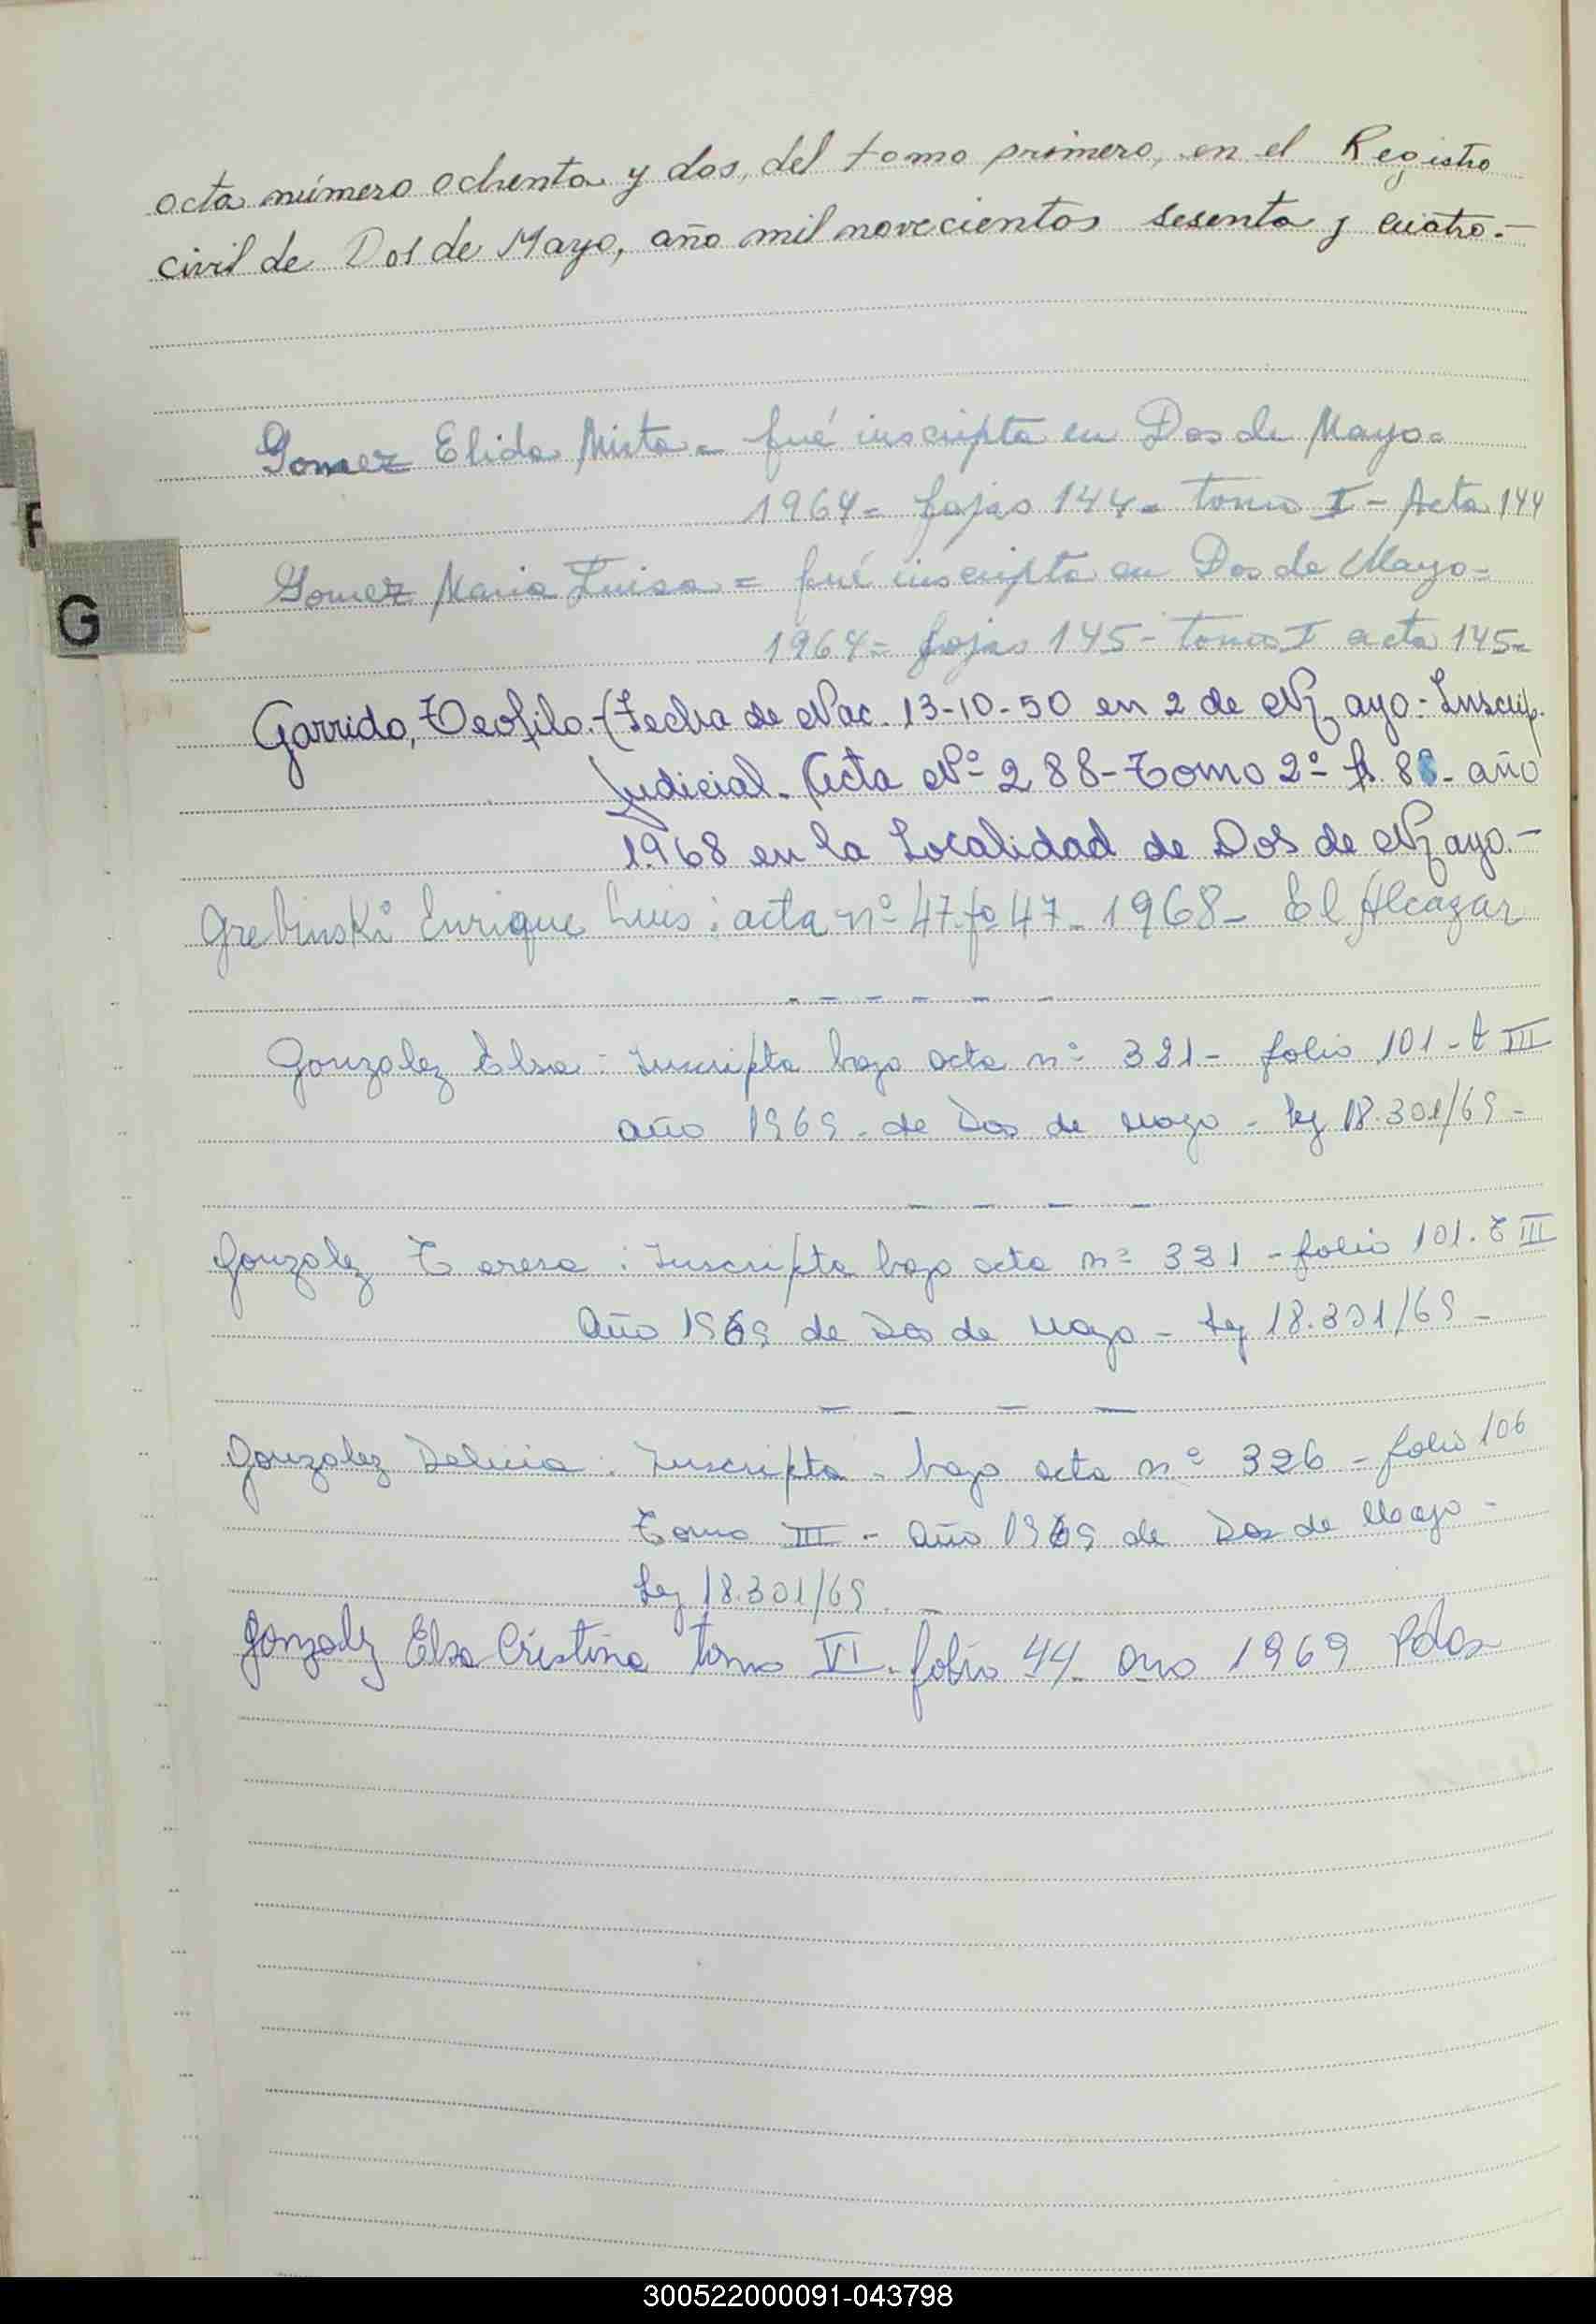 acta número ochenta y dos, del tomo primero, en el Registro
civil de Dos de Mayo, año mil novecientos sesenta y cuatro.-
Gomez Elida Mirta = fué inscripta en Dos de Mayo =
1964 = fojas 144 = tomo I - Acta 144
F
Gomez Maria Luisa = fué inscripta en Dos de Mayo =
G
1964 = fojas 145 - tomo I acta 145 =
Garrido, Teofilo.- (Fecha de Nac. 13-10-50 en 2 de Mayo - Inscrip.
Judicial. Acta Nº 288 - Tomo 2º - fº. 88 - año
1.968 en la Localidad de Dos de Mayo.-
Grebinski Enrique Luis: acta nº 47 fº 47 - 1968 - El Alcazar
- - - - - -
Gonzalez Elsa: Inscripta bajo acta nº 321 - folio 101 - t III
año 1969 - de Dos de Mayo - Ley 18.301/69 -
- - - -
Gonzalez Teresa: Inscripta bajo acta nº 321 - folio 101. T III
Año 1969 de Dos de Mayo - Ley 18.301/69 -
- - - -
Gonzalez Delicia: Inscripta - bajo acta nº 326 - folio 106
Tomo III - Año 1969 de Dos de Mayo -
Ley 18.301/69. -
Gonzalez Elsa Cristina tomo VI - folio 44 - año 1969 Pdas
300522000091-043798